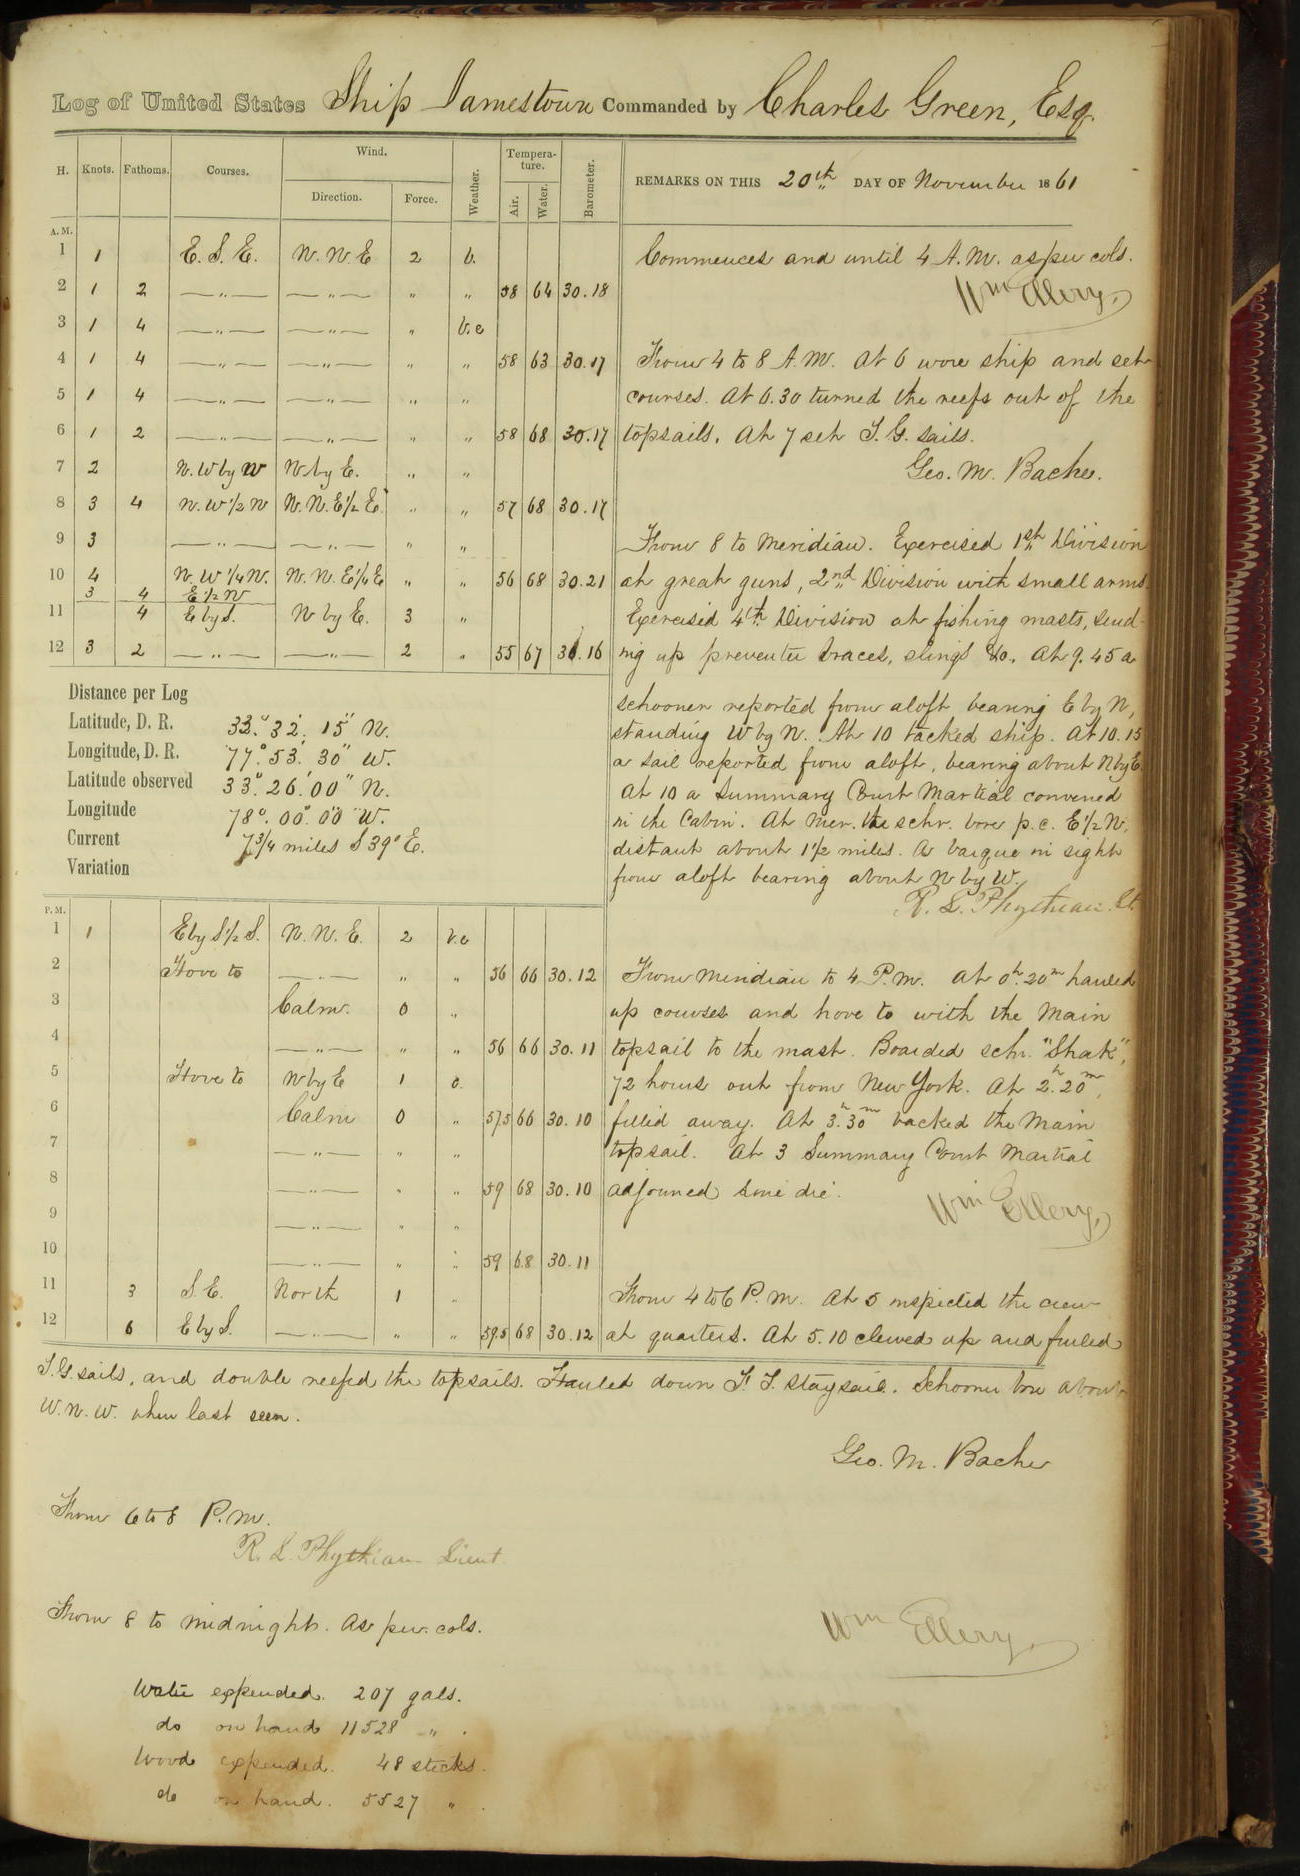 Log of United States Ship Jamestown Commanded by Charles Green, Esq.
H. Knots. Fathoms. Courses. Wind. Direction. Force. Weather. Tempera-ture. Air. Water. Barometer.
REMARKS ON THIS 20th DAY OF November 1861
A.M.
1 1 E. S. E. N. N. E 2 b.
2 1 2 —„— —„— „ „ 58 64 30.18
3 1 4 —„— —„— „ b.c
4 1 4 —„— —„— „ „ 58 63 30.17
5 1 4 —„— —„— „ „
6 1 2 —„— —„— „ „ 58 68 30.17
7 2 N. W by W N by E. „ „
8 3 4 N. W 1/2 N N. N. E 1/2 E. „ „ 57 68 30.17
9 3 —„— —„— „ „
10 4 N. W 1/4 N. N. N. E 1/4 E „ „ 56 68 30.21
3 4 E 1/2 N
11 4 E by S. N by E. 3 „
12 3 2 —„— —„— 2 „ 55 67 30.16
Commences and until 4 A.M. as per cols.
Wm Ellery.
From 4 to 8 A.M. At 6 wore ship and set
courses. At 6.30 turned the reefs out of the
topsails. At 7 set T. G. sails.
Geo. M. Bache.
From 8 to Meridian. Exercised 1st Division
at great guns, 2nd Division with small arms.
Exercised 4th Division at fishing masts, send-
ing up preventer braces, slings &c. At 9.45 a
schooner reported from aloft bearing E by N,
standing W by N. At 10 tacked ship. At 10.15
a sail reported from aloft, bearing about N by E.
At 10 a Summary Court Martial convened
in the Cabin. At Mer. the schr. bore p.c. E 1/2 N,
distant about 1 1/2 miles. A barque in sight
from aloft bearing about N by W.
R. L. Phythian. Lt.
Distance per Log
Latitude, D. R. 33° 32' 15" N.
Longitude, D. R. 77° 53' 30" W.
Latitude observed 33° 26' 00" N.
Longitude 78° 00' 00" W.
Current 7 3/4 miles S 39° E.
Variation
P.M.
1 1 E by S 1/2 S. N. N. E. 2 b.c
2 Hove to —„— „ „ 56 66 30.12
3 Calm. 0 „
4 —„— „ „ 56 66 30.11
5 Hove to N by E 1 c.
6 Calm 0 „ 57.5 66 30.10
7 —„— „ „
8 —„— „ „ 59 68 30.10
9 —„— „ „
10 —„— „ „ 59 68 30.11
11 3 S. E. North 1 „
12 6 E by S. —„— „ „ 59.5 68 30.12
From Meridian to 4 P.M. At 0h. 20m hauled
up courses and hove to with the Main
topsail to the mast. Boarded schr. "Shark",
72 hours out from New York. At 2h. 20m,
filled away. At 3h. 30m backed the Main
topsail. At 3 Summary Court Martial
adjourned sine die.
Wm Ellery,
From 4 to 6 P.M. At 5 inspected the crew
at quarters. At 5.10 clewed up and furled
T. G. sails, and double reefed the topsails. Hauled down F. T. staysail. Schooner bore about
W. N. W. when last seen.
Geo. M. Bache
From 6 to 8 P.M.
R. L. Phythian Lieut.
From 8 to midnight. As per cols.
Wm Ellery.
Water expended. 207 gals.
do on hand 11528 „ .
Wood expended. 48 sticks.
do on hand. 5527 „